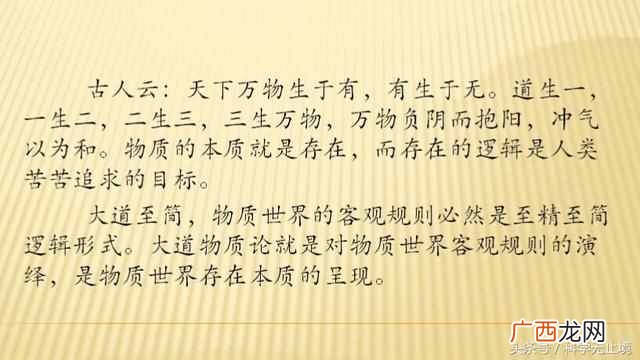 古人云：天下万物生于有，有生于无。道生一，
一生二，二生三，三生万物，万物负阴而抱阳，冲气
以为和。物质的本质就是存在，而存在的逻辑是人类
苦苦追求的目标。
大道至简，物质世界的客观规则必然是至精至简
逻辑形式。大道物质论就是对物质世界客观规则的演
绎，是物质世界存在本质的呈现。
广西龙网
头条号/科学无止境